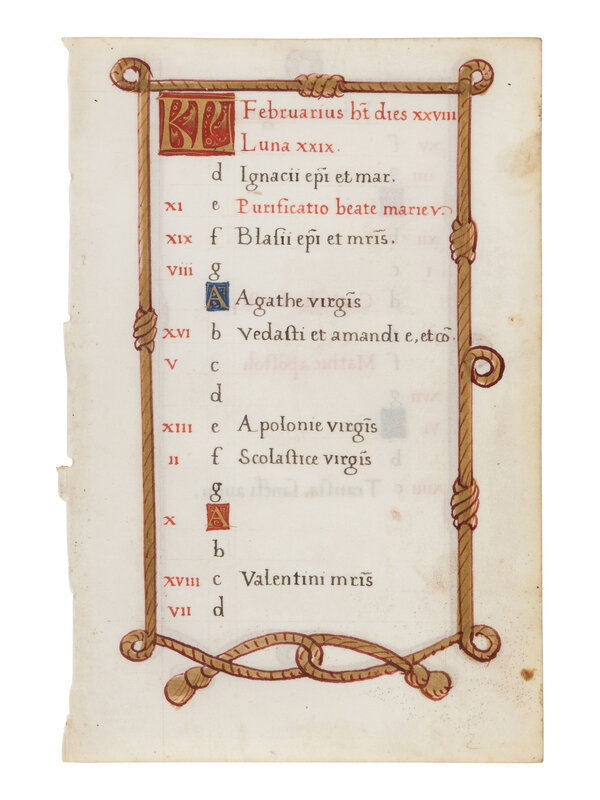 KL Februarius ht̄ dies xxviii
Luna xxix.
d Ignacii ep̄i et mar.
xi e Purificatio beate marie v.
xix f Blasii ep̄i et mr̄is.
viii g
A Agathe virgīs
xvi b Vedasti et amandi e, et cō.
v c
d
xiii e Apolonie virgīs
ii f Scolastice virgīs
g
x A
b
xviii c Valentini mr̄is
vii d